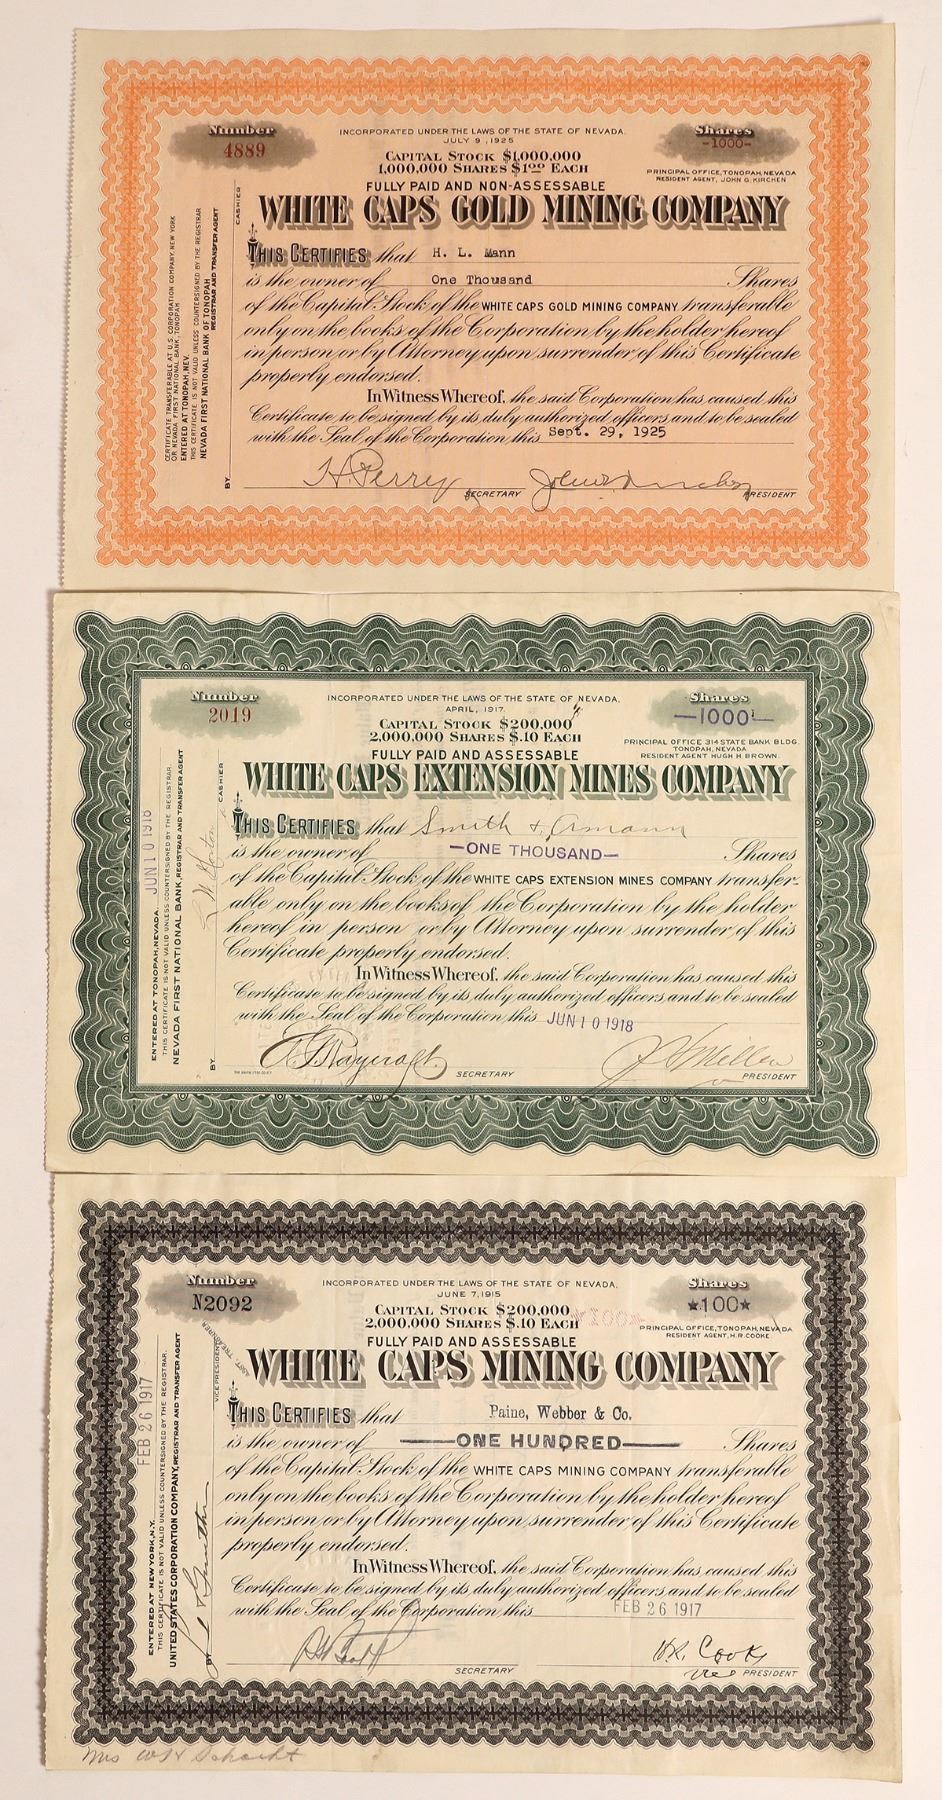 Number
4889
INCORPORATED UNDER THE LAWS OF THE STATE OF NEVADA.
JULY 9, 1925
Shares
-1000-
CAPITAL STOCK $1,000,000
1,000,000 SHARES $1.00 EACH
PRINCIPAL OFFICE, TONOPAH, NEVADA
RESIDENT AGENT, JOHN G. KIRCHEN
FULLY PAID AND NON-ASSESSABLE
WHITE CAPS GOLD MINING COMPANY
CERTIFICATE TRANSFERABLE AT U.S. CORPORATION COMPANY, NEW YORK
OR NEVADA FIRST NATIONAL BANK, TONOPAH
ENTERED AT TONOPAH, NEV.
THIS CERTIFICATE IS NOT VALID UNLESS COUNTERSIGNED BY THE REGISTRAR
NEVADA FIRST NATIONAL BANK OF TONOPAH
REGISTRAR AND TRANSFER AGENT
BY
CASHIER
THIS CERTIFIES that H. L. Mann
is the owner of One Thousand Shares
of the Capital Stock of the WHITE CAPS GOLD MINING COMPANY transferable
only on the books of the Corporation by the holder hereof
in person or by Attorney upon surrender of this Certificate
properly endorsed.
In Witness Whereof, the said Corporation has caused this
Certificate to be signed by its duly authorized officers and to be sealed
with the Seal of the Corporation this Sept. 29, 1925
H Perry
SECRETARY
PRESIDENT
Number
2019
INCORPORATED UNDER THE LAWS OF THE STATE OF NEVADA,
APRIL, 1917.
Shares
—1000—
CAPITAL STOCK $200,000
2,000,000 SHARES $.10 EACH
PRINCIPAL OFFICE 314 STATE BANK BLDG.
TONOPAH, NEVADA
RESIDENT AGENT HUGH H BROWN.
FULLY PAID AND ASSESSABLE
WHITE CAPS EXTENSION MINES COMPANY
ENTERED AT TONOPAH, NEVADA. JUN 10 1918
THIS CERTIFICATE IS NOT VALID UNLESS COUNTERSIGNED BY THE REGISTRAR.
NEVADA FIRST NATIONAL BANK, REGISTRAR AND TRANSFER AGENT
BY
CASHIER
THIS CERTIFIES that Smith & Amann
is the owner of —ONE THOUSAND— Shares
of the Capital Stock of the WHITE CAPS EXTENSION MINES COMPANY transfer-
able only on the books of the Corporation by the holder
hereof in person or by Attorney upon surrender of this
Certificate properly endorsed.
In Witness Whereof, the said Corporation has caused this
Certificate to be signed by its duly authorized officers and to be sealed
with the Seal of the Corporation this JUN 10 1918
SECRETARY
PRESIDENT
Number
N2092
INCORPORATED UNDER THE LAWS OF THE STATE OF NEVADA,
JUNE 7, 1915
Shares
★100★
CAPITAL STOCK $200,000
2,000,000 SHARES $.10 EACH
PRINCIPAL OFFICE, TONOPAH, NEVADA
RESIDENT AGENT, H.R. COOKE
FULLY PAID AND ASSESSABLE
WHITE CAPS MINING COMPANY
ENTERED AT NEW YORK, N.Y. FEB 26 1917
THIS CERTIFICATE IS NOT VALID UNLESS COUNTERSIGNED BY THE REGISTRAR.
UNITED STATES CORPORATION COMPANY, REGISTRAR AND TRANSFER AGENT
BY
VICE PRESIDENT
ASST. TREASURER
THIS CERTIFIES that Paine, Webber & Co.
is the owner of —ONE HUNDRED— Shares
of the Capital Stock of the WHITE CAPS MINING COMPANY transferable
only on the books of the Corporation by the holder hereof
in person or by Attorney upon surrender of this Certificate
properly endorsed.
In Witness Whereof, the said Corporation has caused this
Certificate to be signed by its duly authorized officers and to be sealed
with the Seal of the Corporation, this FEB 26 1917
H.R. Cooke
SECRETARY
Vice PRESIDENT
Mrs Schacht